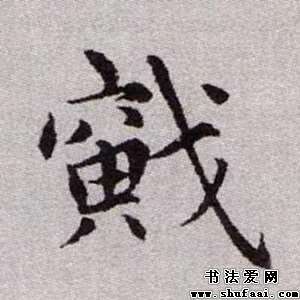 戭
书法爱网
www.shufaai.com